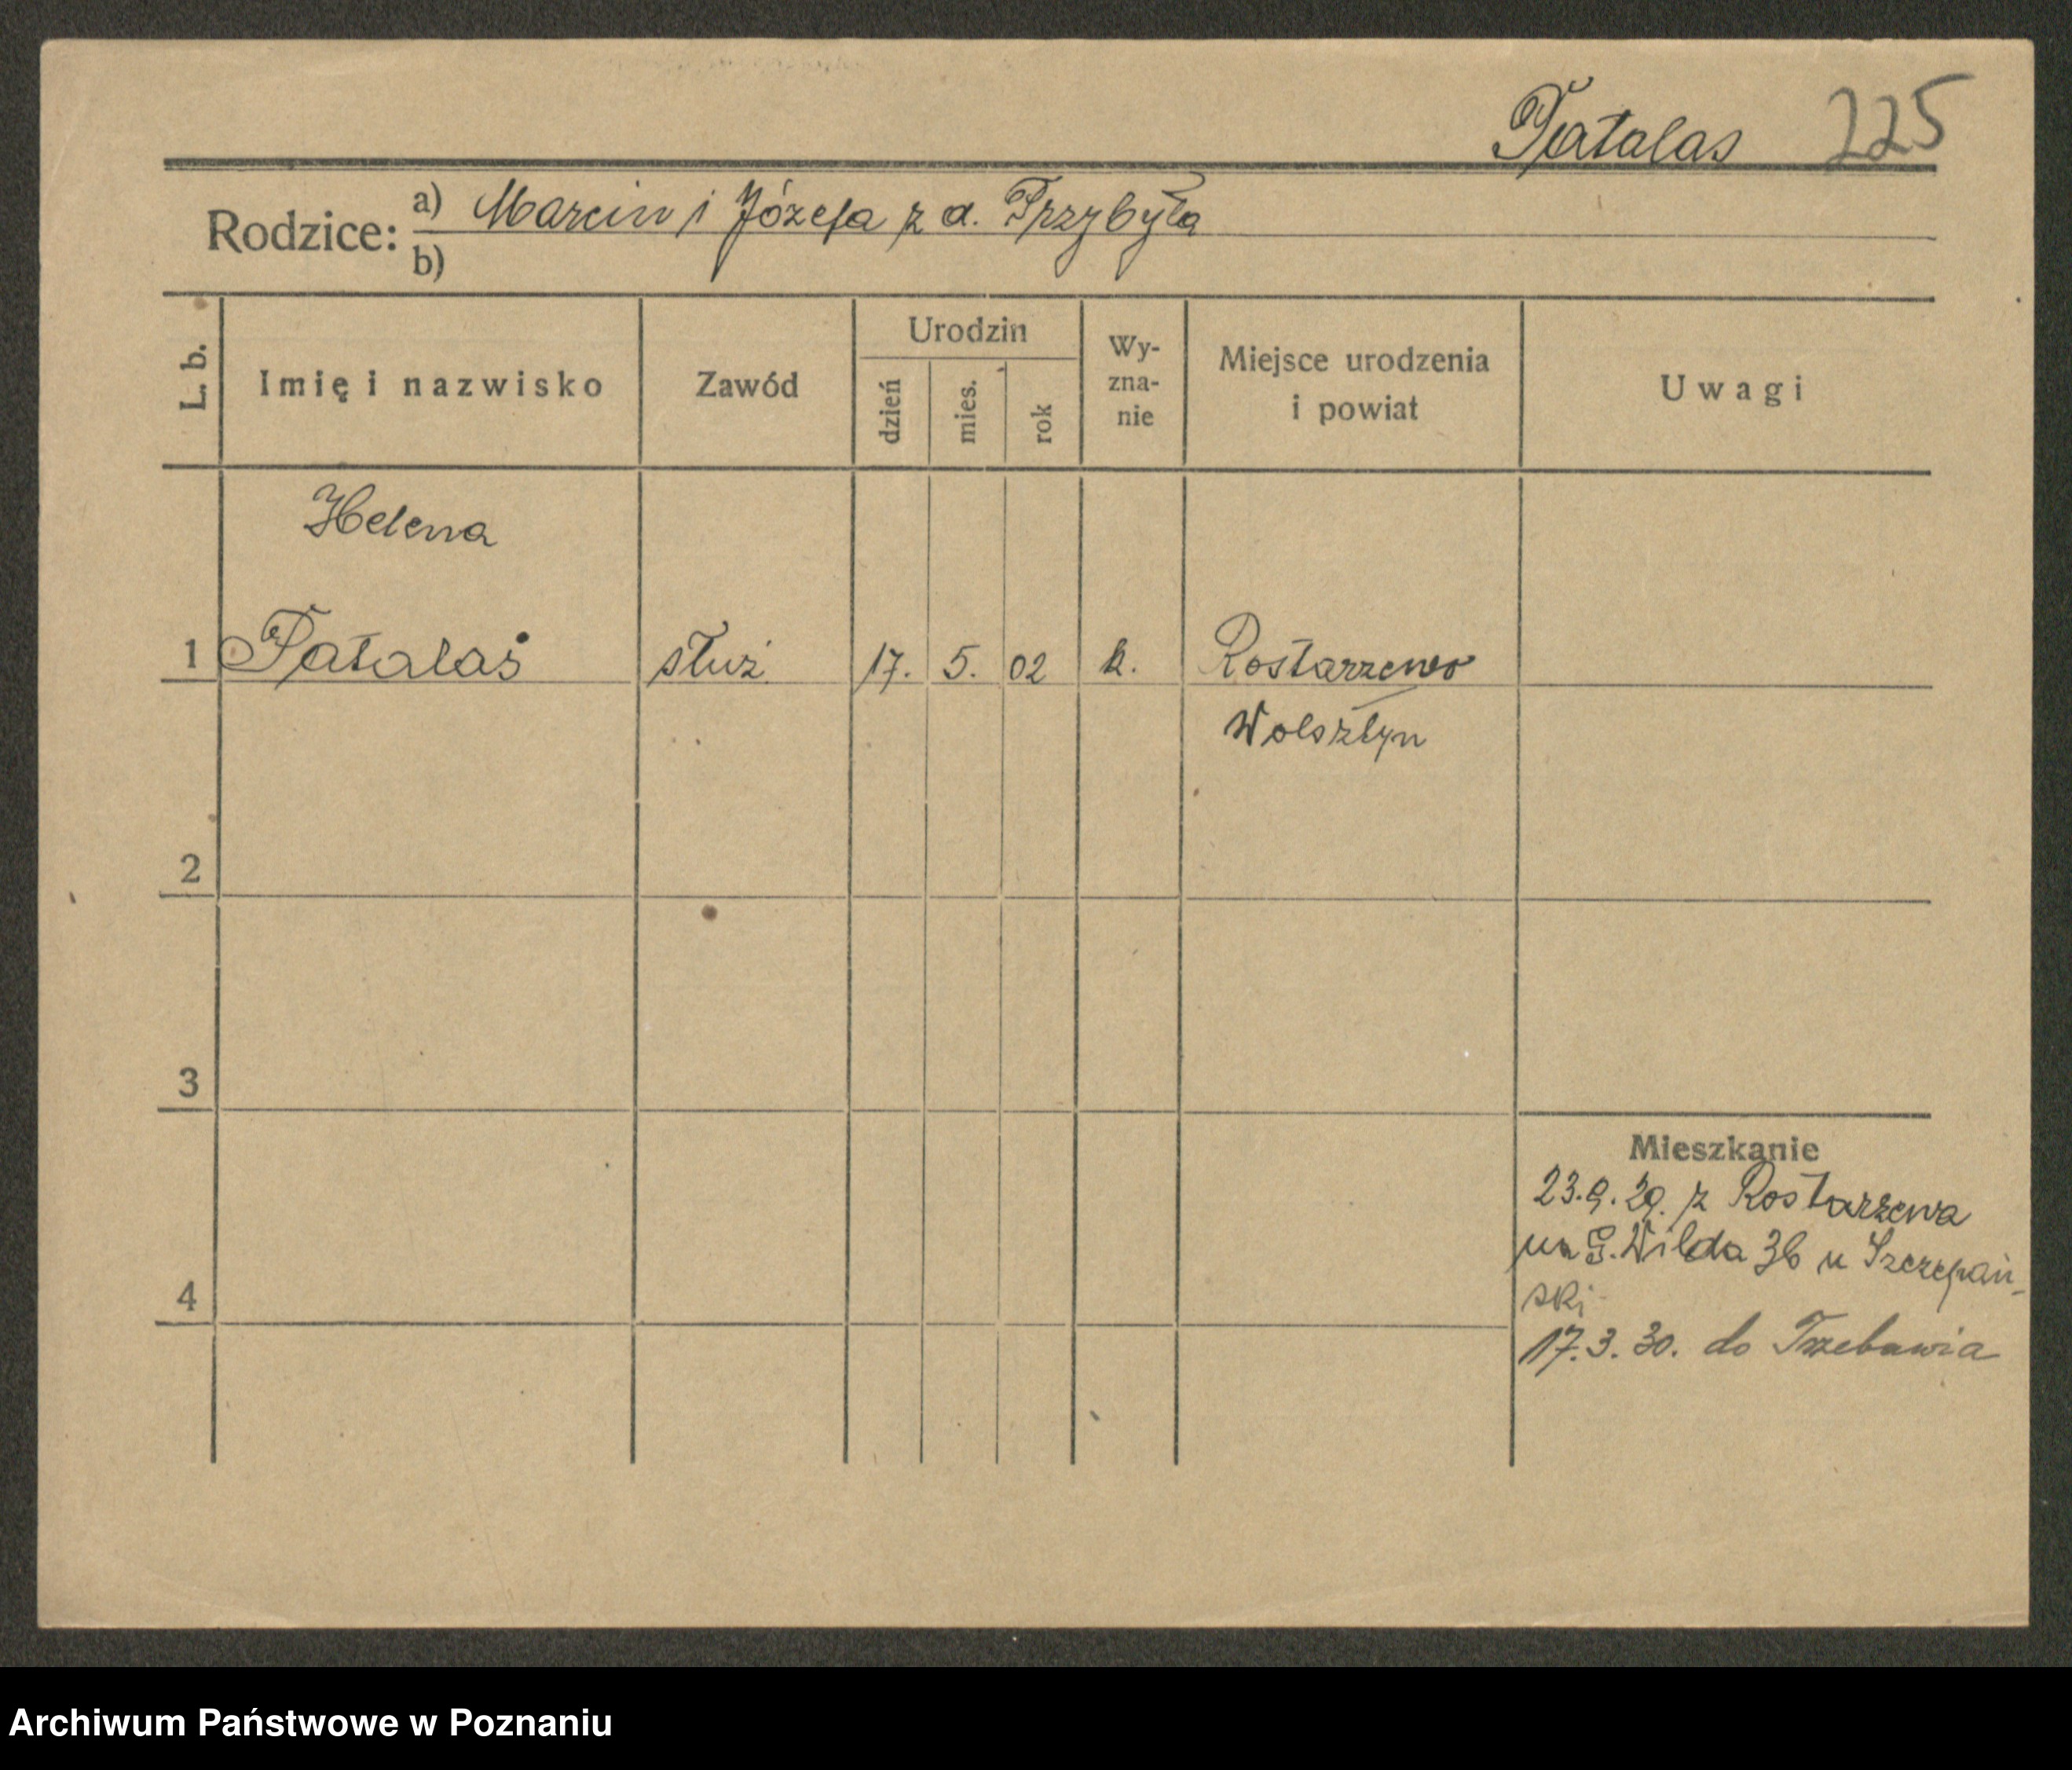 Patalas 225
Rodzice: a) Marcin i Józefa z d. Przybyła
b)
L. b.
Imię i nazwisko
Zawód
Urodzin
dzień
mies.
rok
Wy-
zna-
nie
Miejsce urodzenia
i powiat
Uwagi
Helena
1 Patalas służ. 17. 5. 02 k. Rostarzewo
Wolsztyn
2
3
4
Mieszkanie
23.9.29. z Rostarzewa
na G. Wilda 36 u Szczepań-
ski
17.3.30. do Trzebawia
Archiwum Państwowe w Poznaniu